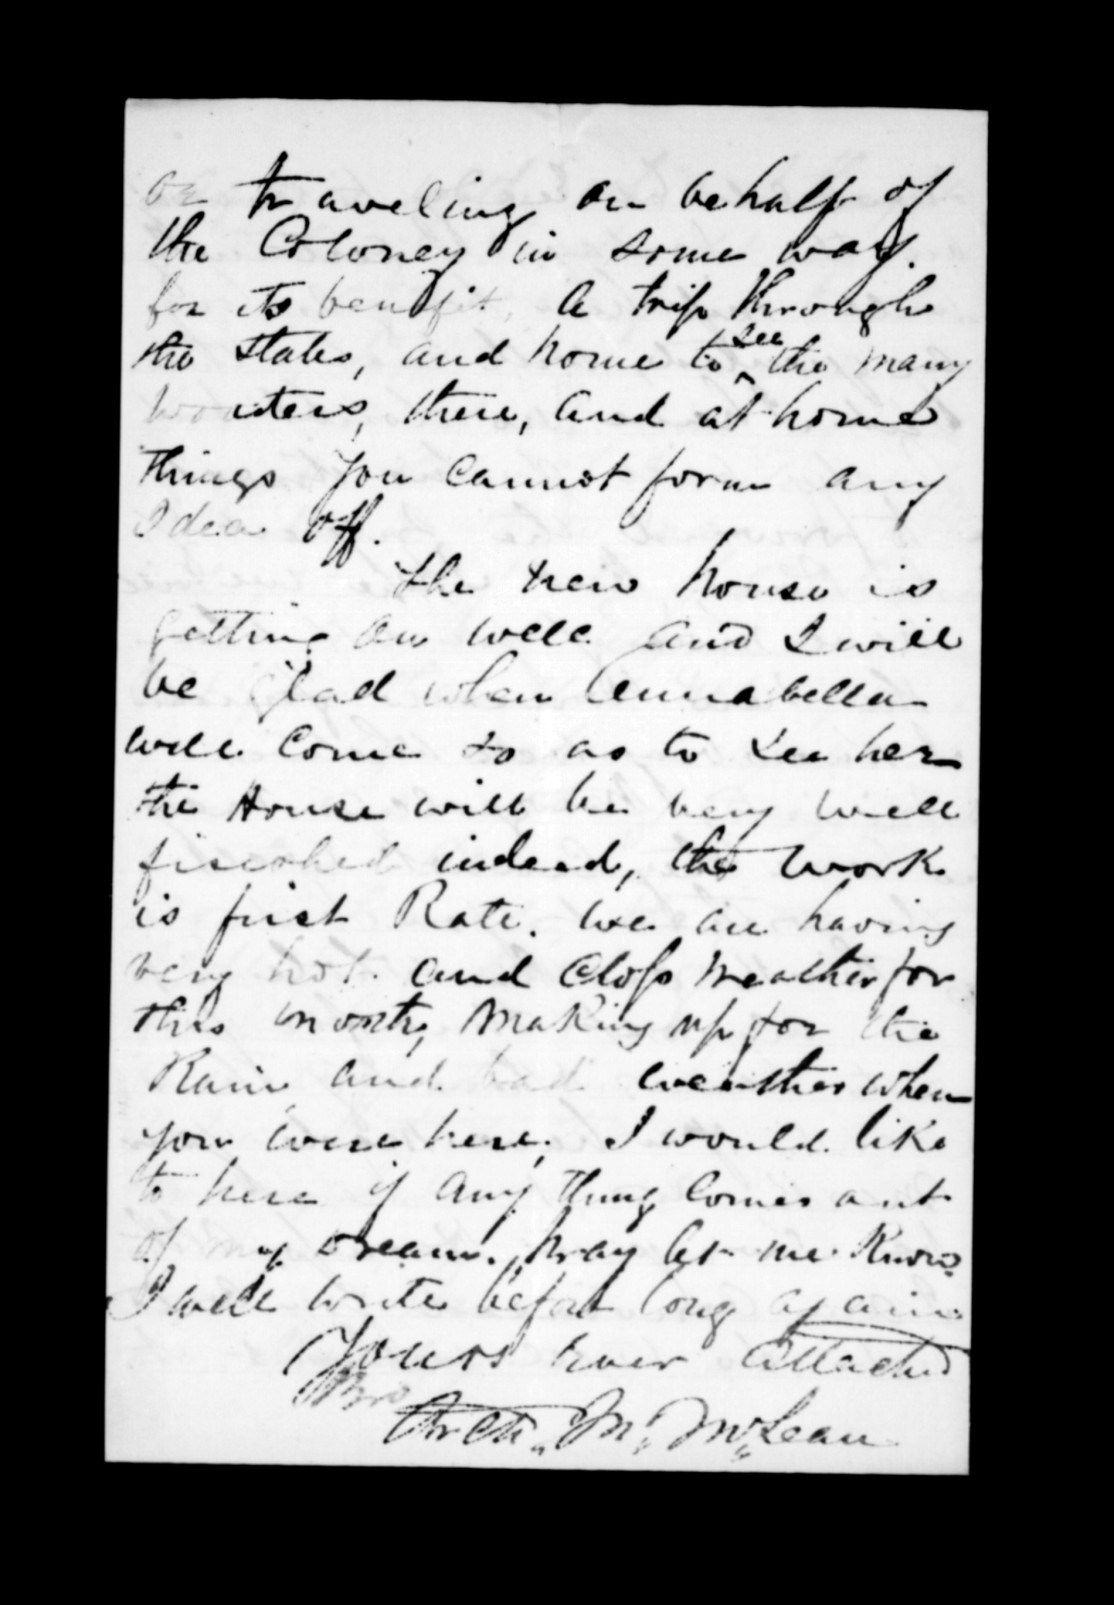 or traveling on behalf of
the Coloney in some way.
for its benefit, A trip through
the states, and home to see the many
wonters, there, and at home
things you cannot form any
Idea off.
The new house is
getting on well and I will
be glad when Annabella
will come so as to see her
the House will be very well
finished indeed, the work
is first Rate. we are having
very hot and Closs weather for
this month, Making up for the
Rain and bad weather when
you were here, I would like
to here if any thing comes out
of my Dream. pray let me know
I will write before long again
Yours Ever attached
Bro
Archd. M. McLean